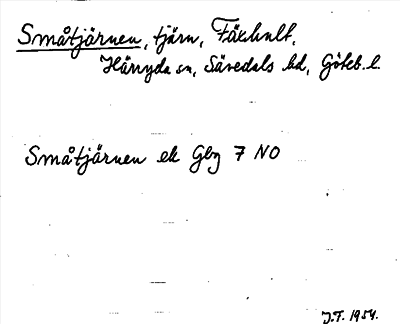 Småtjärnen, tjärn, Fäxhult,
Härryda sn, Sävedals hd, Göteb. l.
Småtjärnen ek Gbg 7 NO
J.F. 1954.